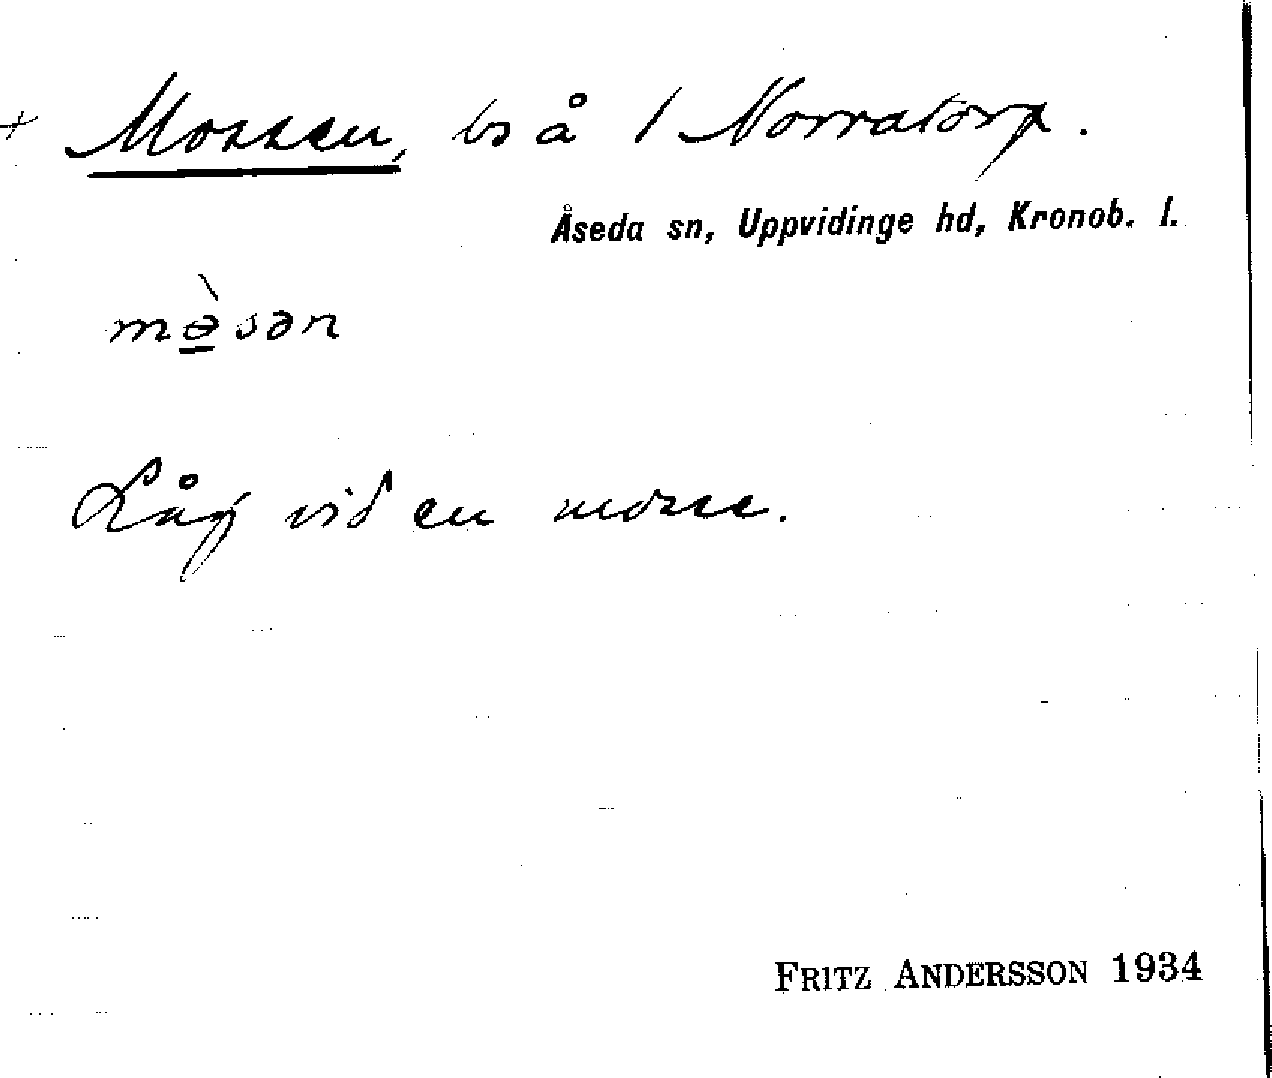 + Mossen, bs å 1 Norratorp.
Åseda sn, Uppvidinge hd, Kronob. l.
mə̀sən
Låg vid en mosse.
FRITZ ANDERSSON 1934